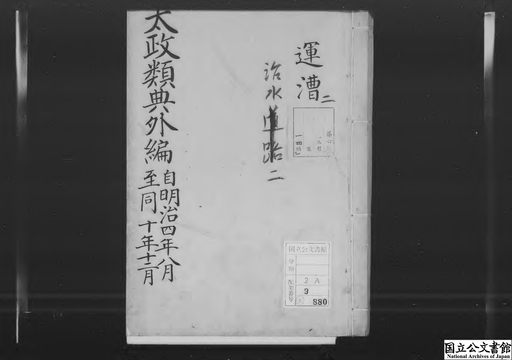 運漕 二
治水道路 二
太政類典外編 自明治四年八月
至同十年十二月
国立公文書館
2A
9
880
国立公文書館
National Archives of Japan